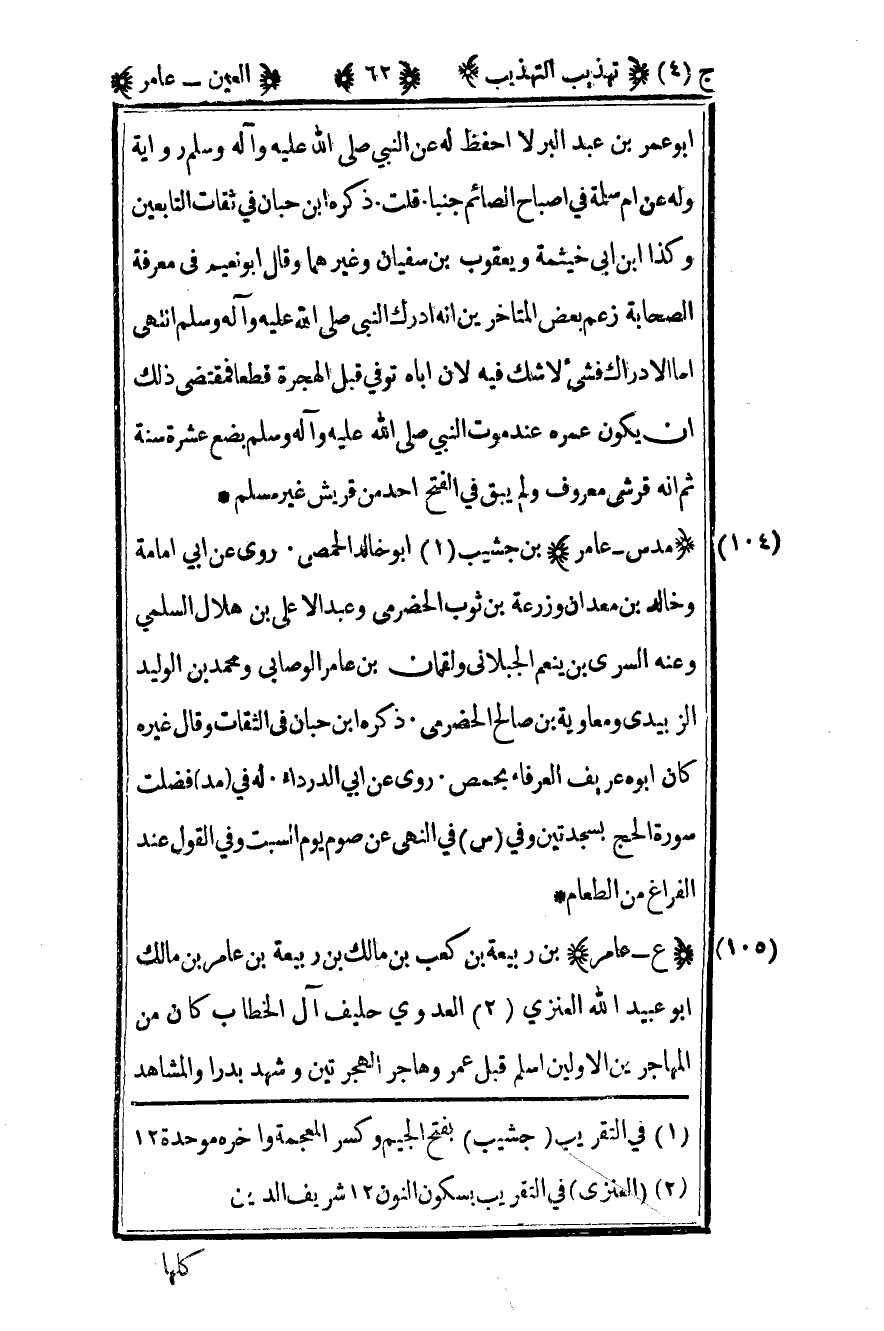 ج (٤) ﴿ تهذيب التهذيب ﴾ ﴿ ٦٢ ﴾ ﴿ العين – عامر ﴾
ابوعمر بن عبد البر لا احفظ له عن النبي صلى الله عليه وآله وسلم رواية
وله عن ام سلمة في اصباح الصائم جنبا. قلت. ذكره ابن حبان في ثقات التابعين
وكذا ابن ابي خيثمة ويعقوب بن سفيان وغيرهما وقال ابو نعيم فى معرفة
الصحابة زعم بعض المتاخرين انه ادرك النبي صلى الله عليه وآله وسلم انتهى
اما الادراك فشىٔ لاشك فيه لان اباه توفي قبل الهجرة قطعا فمقتضى ذلك
ان يكون عمره عند موت النبي صلى الله عليه وآله وسلم بضع عشرة سنة
ثم انه قرشى معروف ولم يبق في الفتح احد من قريش غير مسلم *
(١٠٤) ﴿ مدس – عامر ﴾ بن جشيب (١) ابو خالد الحمصى. روى عن ابي امامة
وخالد بن معدان وزرعة بن ثوب الحضرمى وعبد الاعلى بن هلال السلمي
وعنه السرى بن ينعم الجبلانى ولقمان بن عامر الوصابي ومحمد بن الوليد
الزبيدى ومعاوية بن صالح الحضرمى. ذكره ابن حبان فى الثقات وقال غيره
كان ابوه عريف العرفاء بحمص. روى عن ابي الدرداء. له في (مد) فضلت
سورة الحج بسجدتين وفي (س) في النهى عن صوم يوم السبت وفي القول عند
الفراغ من الطعام *
(١٠٥) ﴿ ع – عامر ﴾ بن ربيعة بن كعب بن مالك بن ربيعة بن عامر بن مالك
ابو عبيد الله العنزي (٢) العدوي حليف آل الخطاب كان من
المهاجرين الاولين اسلم قبل عمر وهاجر الهجرتين وشهد بدرا والمشاهد
(١) في التقريب (جشيب) بفتح الجيم وكسر المعجمة واخره موحدة ١٢
(٢) (العنزى) في التقريب بسكون النون ١٢ شريف الدين
كلها